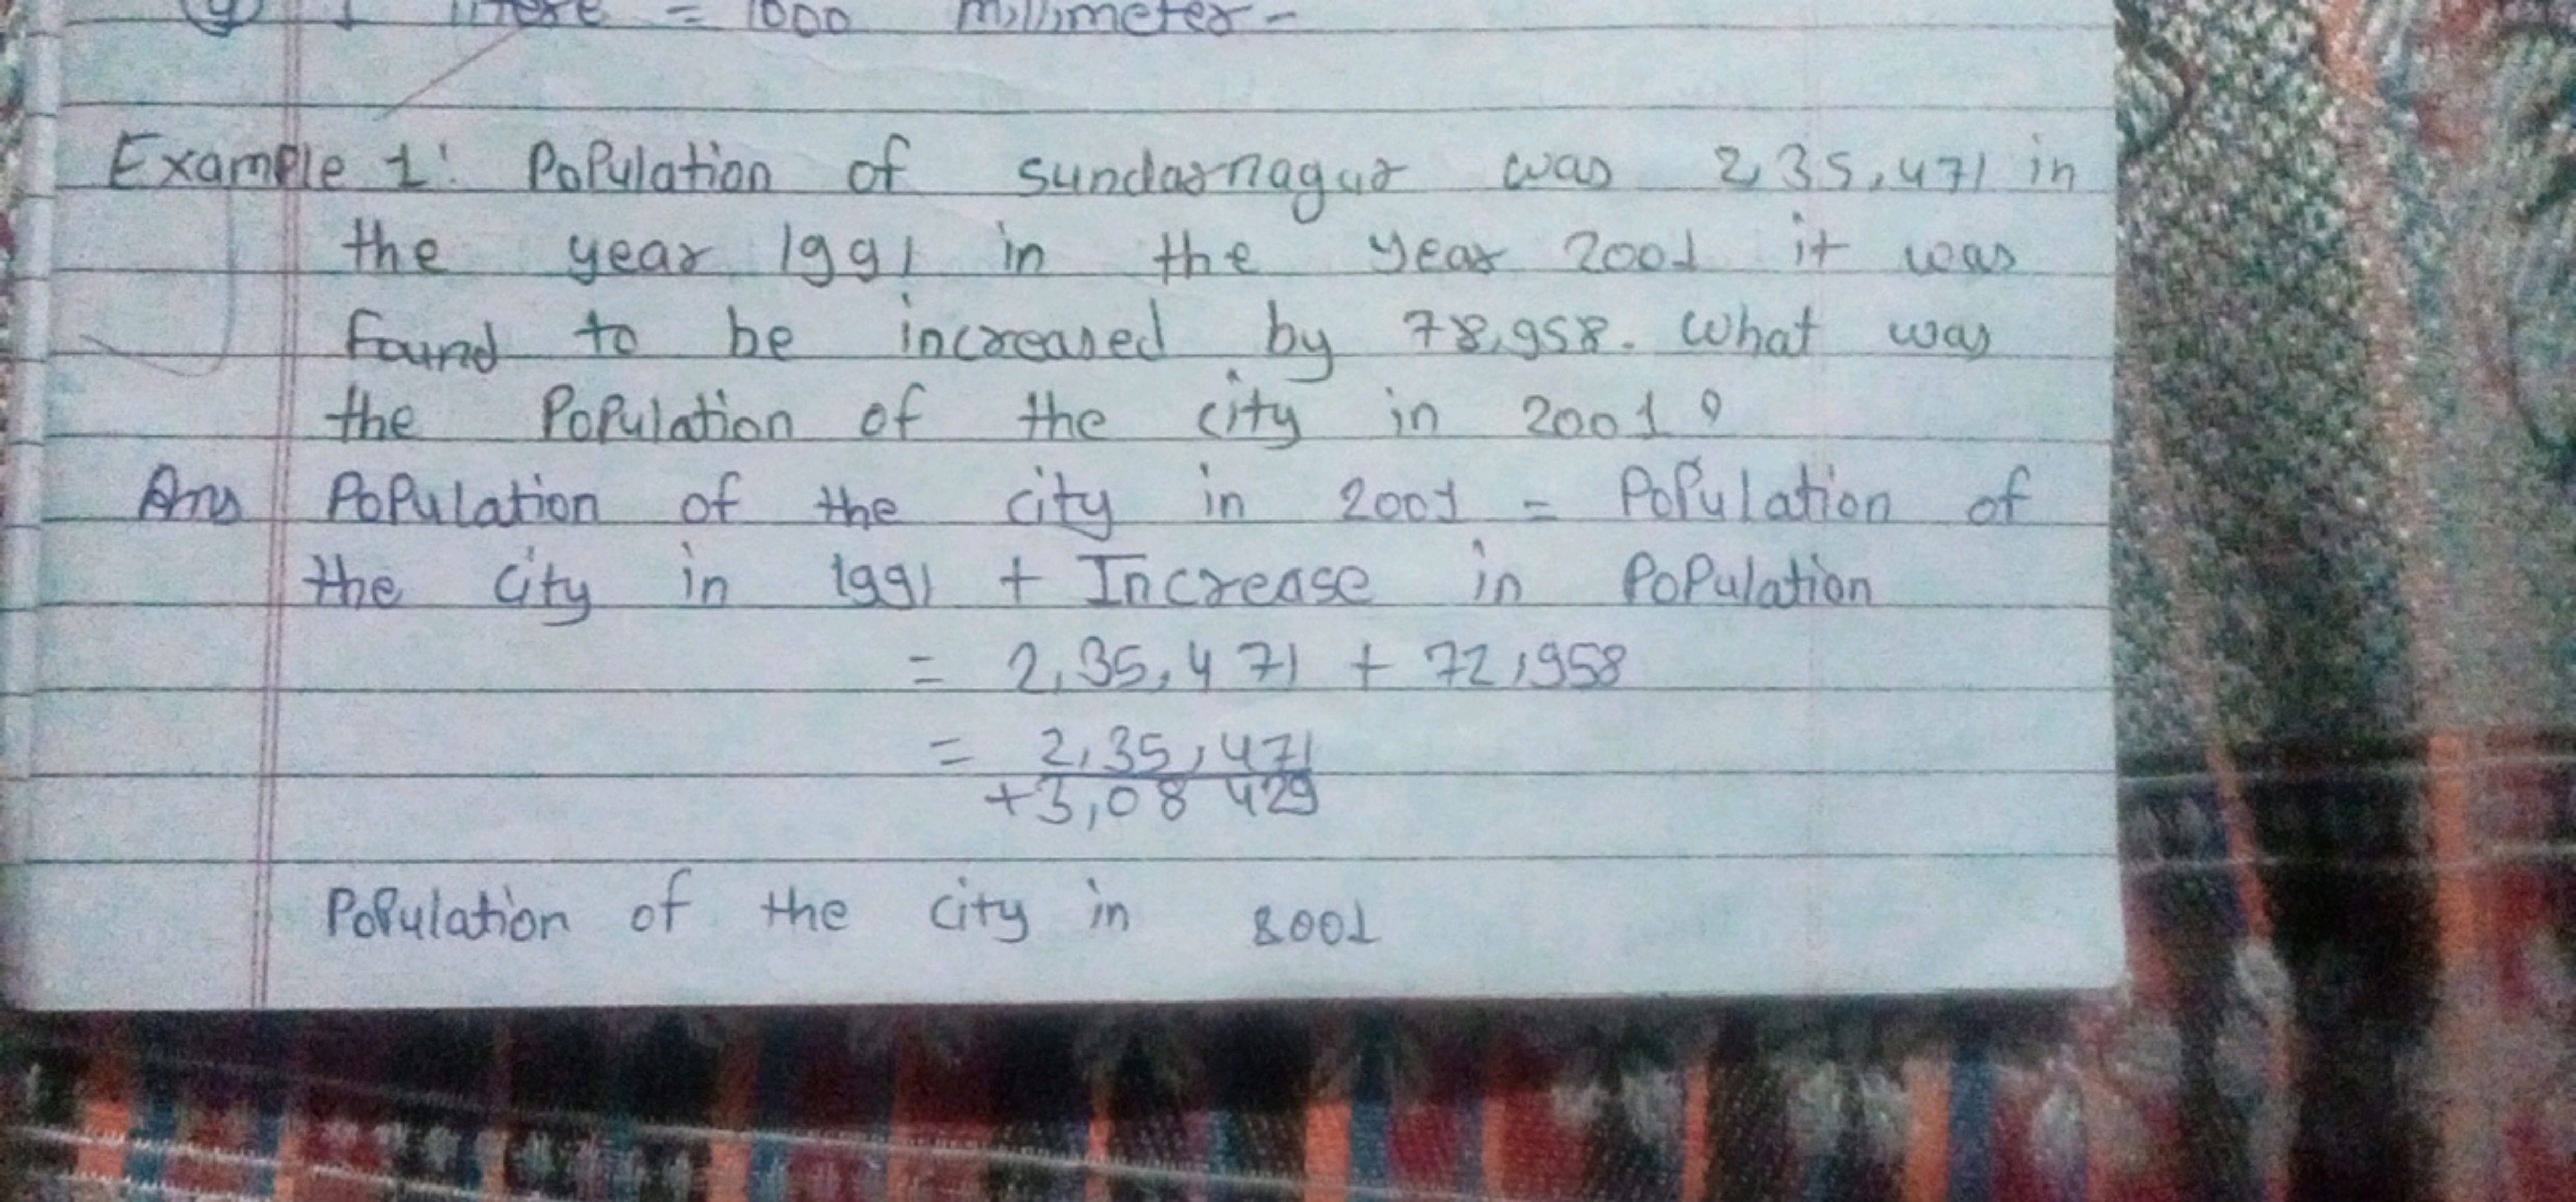 1 litere = 1000 millimeter -
Example 1: Population of sundarnagar was 2,35,471 in
the year 1991 in the year 2001 it was
found to be increased by 78,958. What was
the Population of the city in 2001?
Ans Population of the city in 2001 = Population of
the city in 1991 + Increase in Population
= 2,35,471 + 72,958
= 2,35,471
+3,08 429
Population of the city in 2001